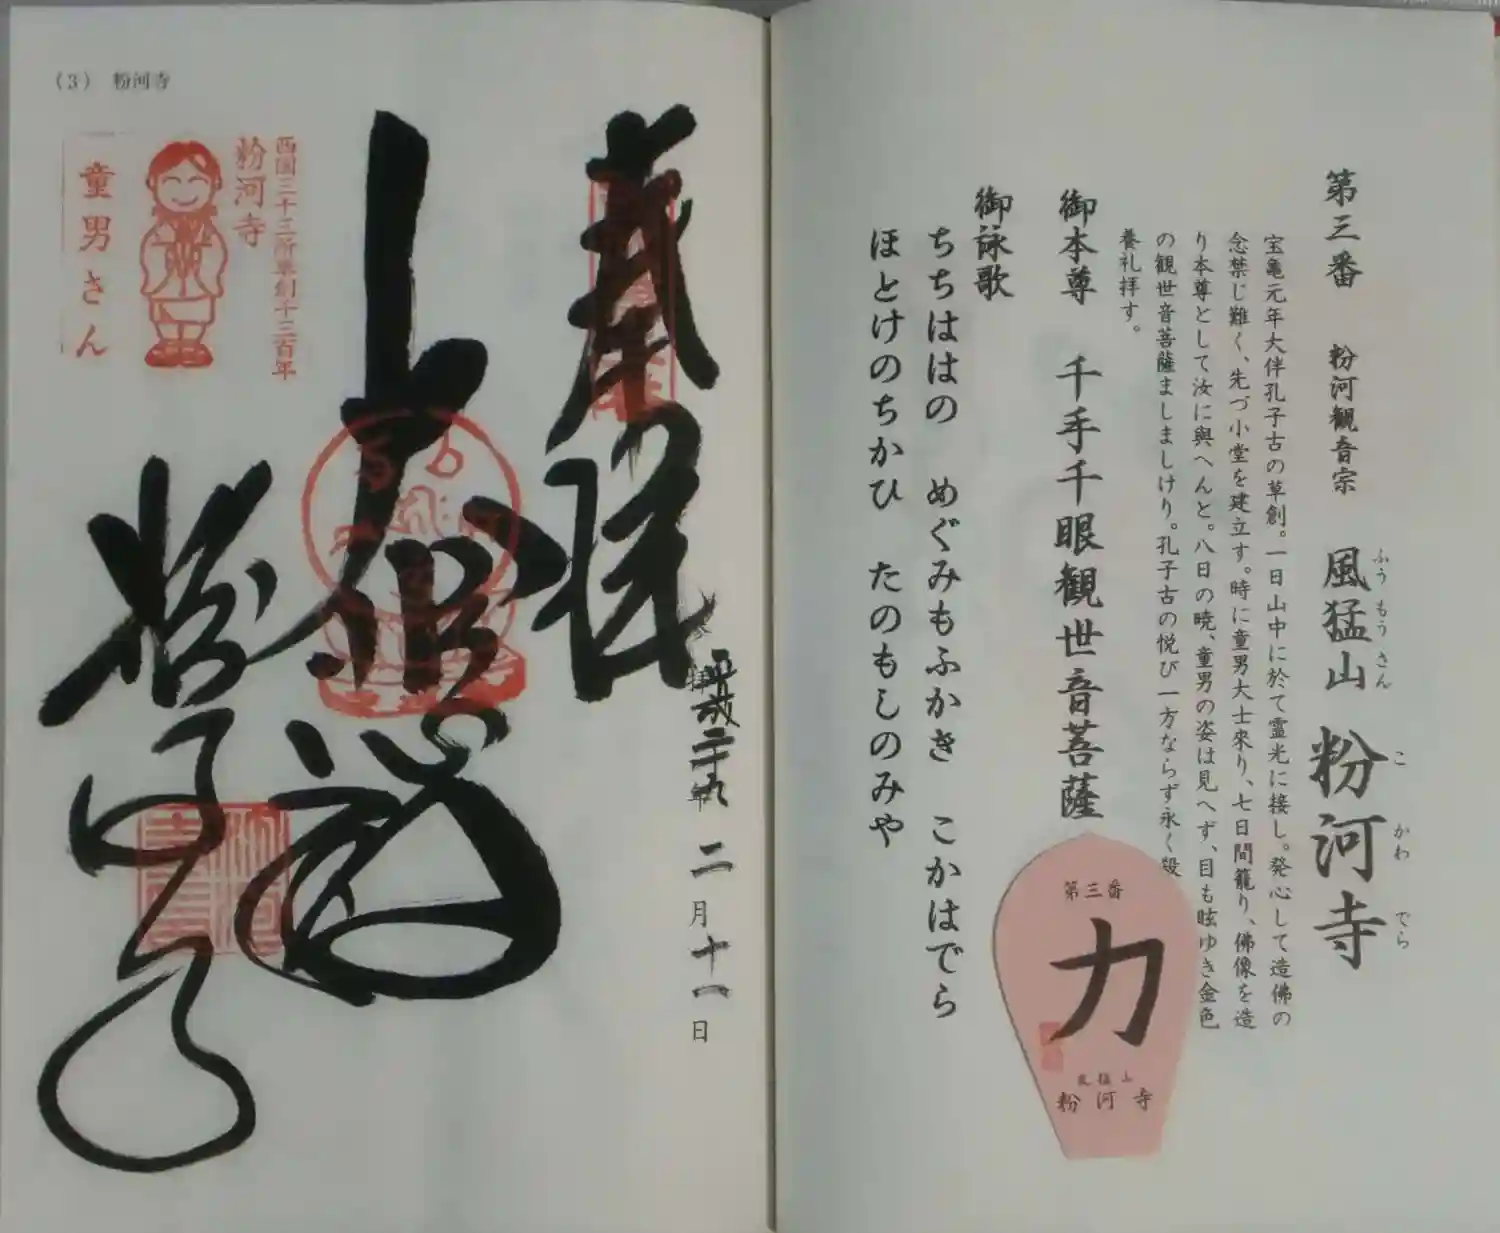 第三番 粉河観音宗 風猛山 粉河寺
ふうもうさん こかわでら
宝亀元年大伴孔子古の草創。一日山中に於て霊光に接し。発心して造佛の
念禁じ難く、先づ小堂を建立す。時に童男大士来り、七日間籠り、佛像を造
り本尊として汝に與へんと。八日の暁、童男の姿は見へず、目も眩ゆき金色
の観世音菩薩ましましけり。孔子古の悦び一方ならず永く殺
養礼拝す。
御本尊 千手千眼観世音菩薩
御詠歌
ちちははの めぐみもふかき こかはでら
ほとけのちかひ たのもしのみや
第三番
力
風猛山
粉河寺
(3) 粉河寺
奉拝
平成二十九年 二月十一日
大悲殿
粉河寺
西国三十三所草創千三百年
粉河寺
童男さん